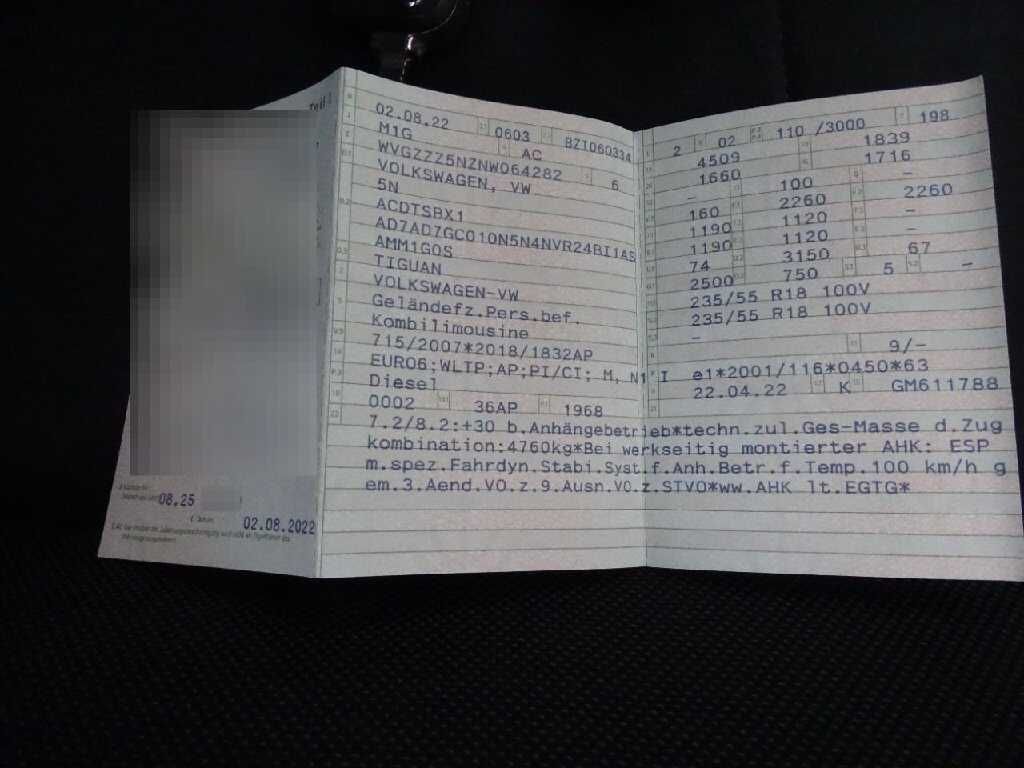 Teil I
08.25
02.08.2022
02.08.22 0603 BZI060334
M1G AC
WVGZZZ5NZNW064282 6
VOLKSWAGEN, VW
5N
ACDTSBX1
AD7AD7GC010N5N4NVR24BI1AS
AMM1G0S
TIGUAN
VOLKSWAGEN-VW
Geländefz.Pers.bef.
Kombilimousine
715/2007*2018/1832AP
EURO6;WLTP;AP;PI/CI; M, N1 I
Diesel
0002 36AP 1968
2 02 110 /3000 198
4509 1839
1660 1716
- 100 -
160 2260 2260
1190 1120 -
1190 1120 -
74 3150 67
2500 750 5 -
235/55 R18 100V
235/55 R18 100V
- 9/-
e1*2001/116*0450*63
22.04.22 K GM611788
7.2/8.2:+30 b.Anhängebetrieb*techn.zul.Ges-Masse d.Zug
kombination:4760kg*Bei werkseitig montierter AHK: ESP
m.spez.Fahrdyn.Stabi.Syst.f.Anh.Betr.f.Temp.100 km/h g
em.3.Aend.VO.z.9.Ausn.VO.z.STVO*ww.AHK lt.EGTG*